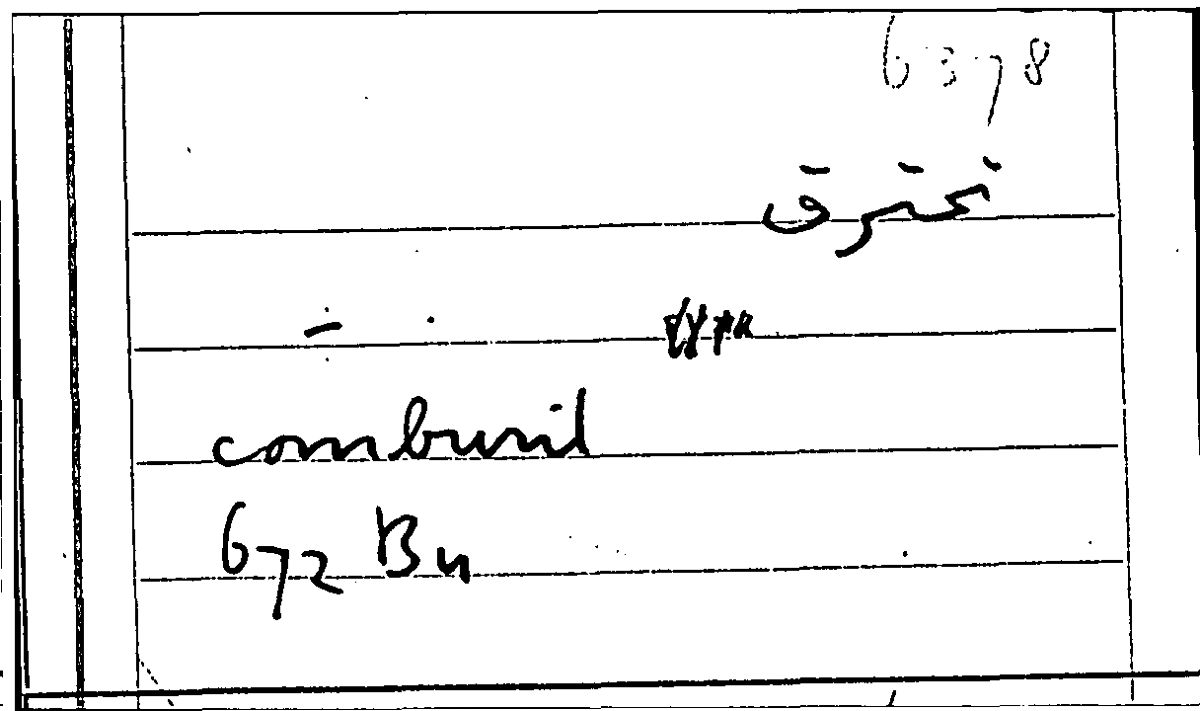 6378
تحترق
comburit
672 Bu